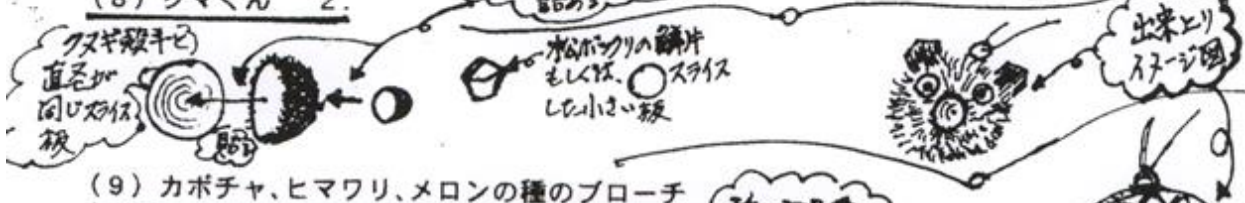 (8) クマくん 2.
詰める
クヌギ殻斗と
直径が
同じスライス
板
貼る
水松ボックリの鱗片
もしくは、スライス
した小さい板
出来上り
イメージ図
(9) カボチャ、ヒマワリ、メロンの種のブローチ